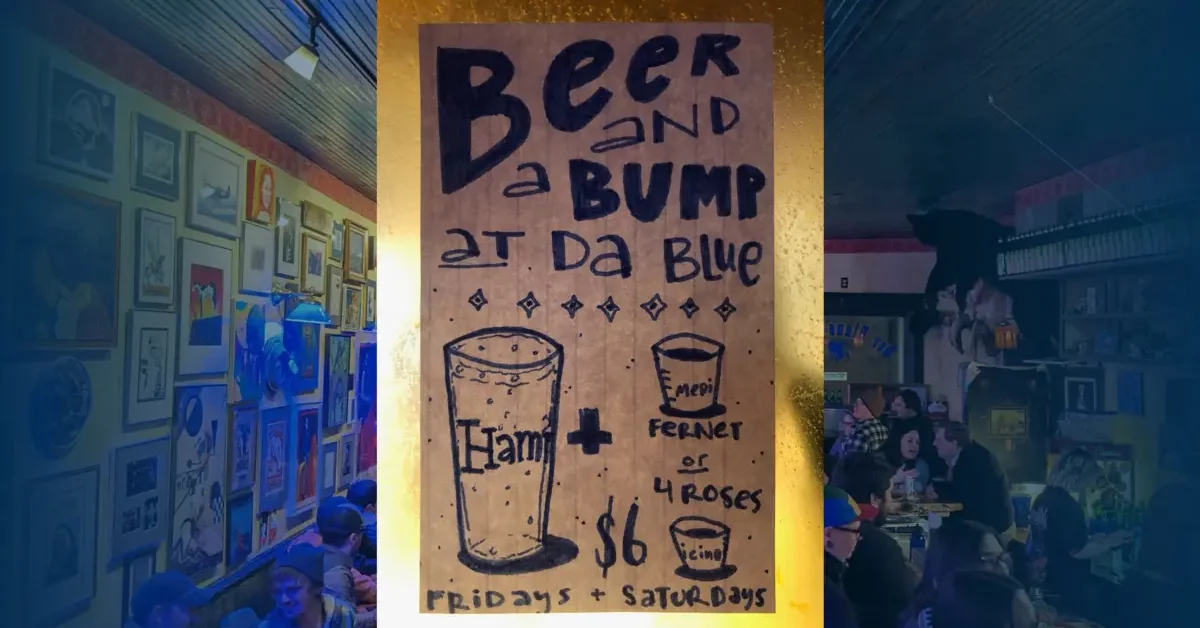 Beer
and
a BUMP
at Da Blue
Ham
+
Medi
Fernet
or
4 Roses
$6
icine
Fridays + Saturdays